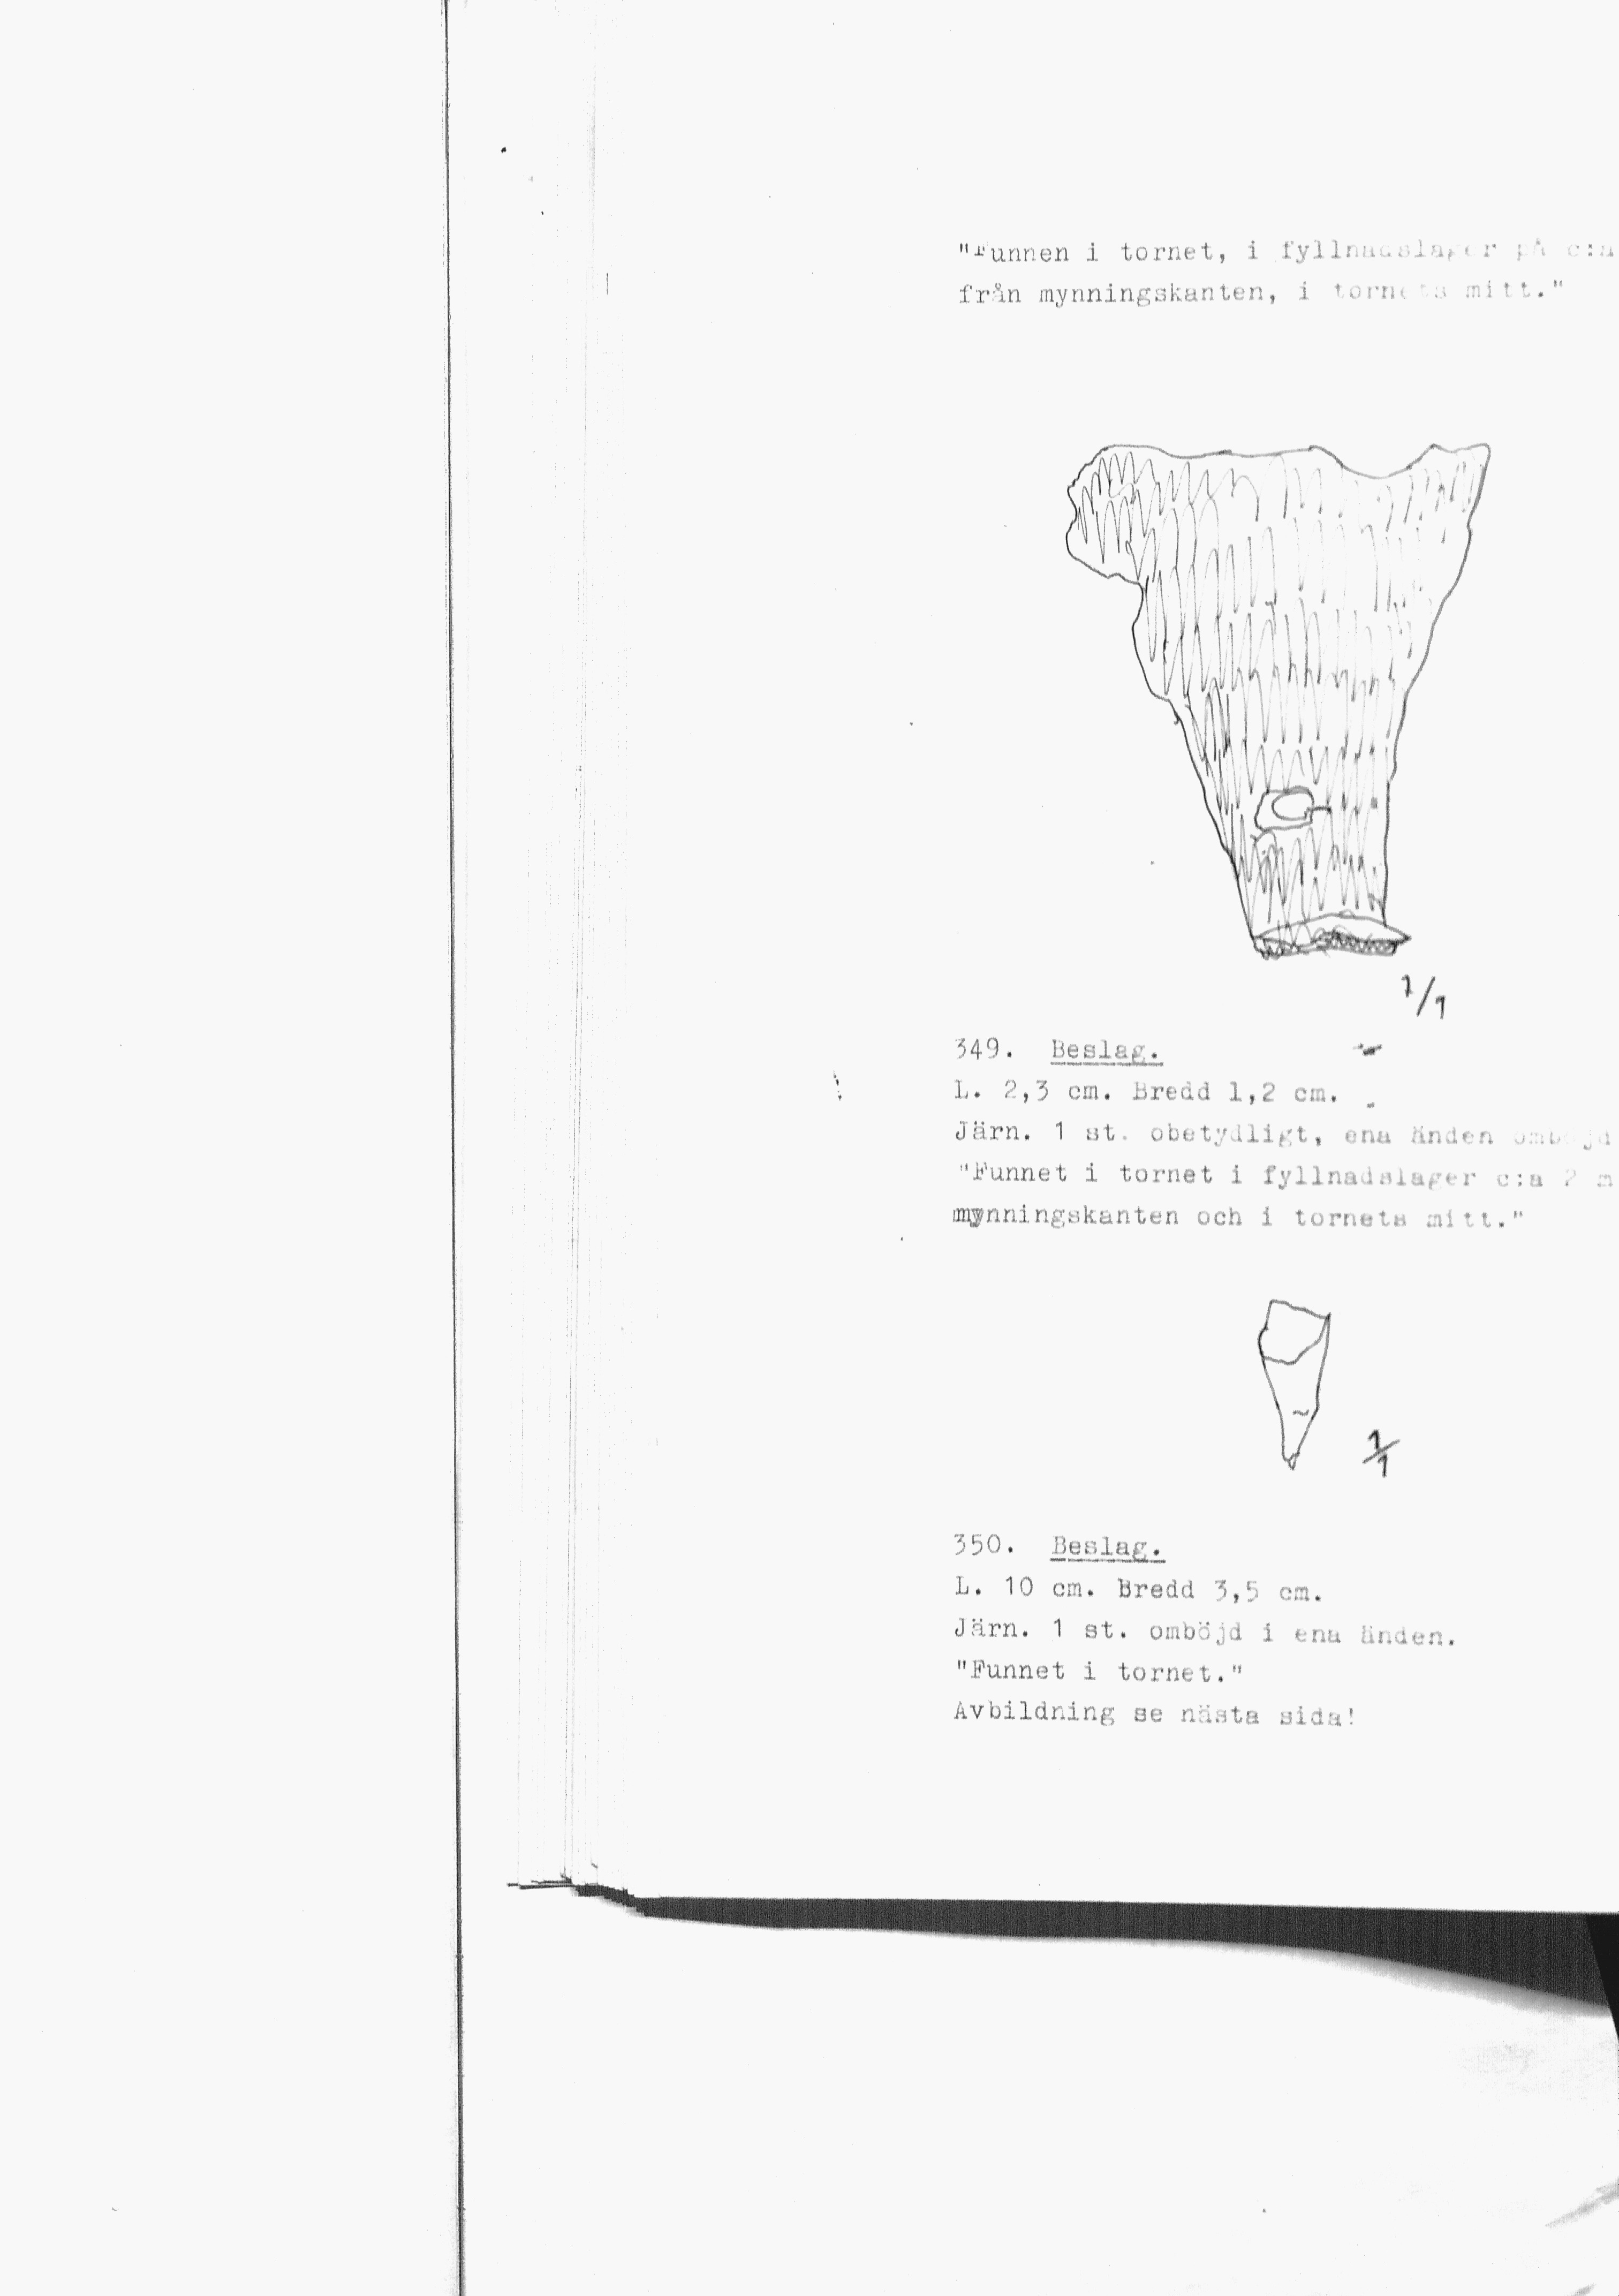 "Funnen i tornet, i fyllnadslager på c:a
från mynningskanten, i tornets mitt."
1/1
349. Beslag.
L. 2,3 cm. Bredd 1,2 cm.
Järn. 1 st. obetydligt, ena änden omböjd
"Funnet i tornet i fyllnadslager c:a 2 m
mynningskanten och i tornets mitt."
1/1
350. Beslag.
L. 10 cm. Bredd 3,5 cm.
Järn. 1 st. omböjd i ena änden.
"Funnet i tornet."
Avbildning se nästa sida!